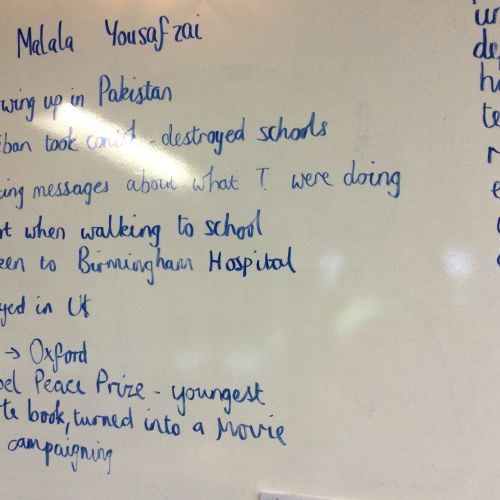 Malala Yousafzai
wing up in Pakistan
iban took - destroyed schools
ing messages about what T were doing
t when walking to school
een to Birmingham Hospital
yed in UK
→ Oxford
el Peace Prize - youngest
te book, turned into a Movie
campaigning
ur
de
h
te